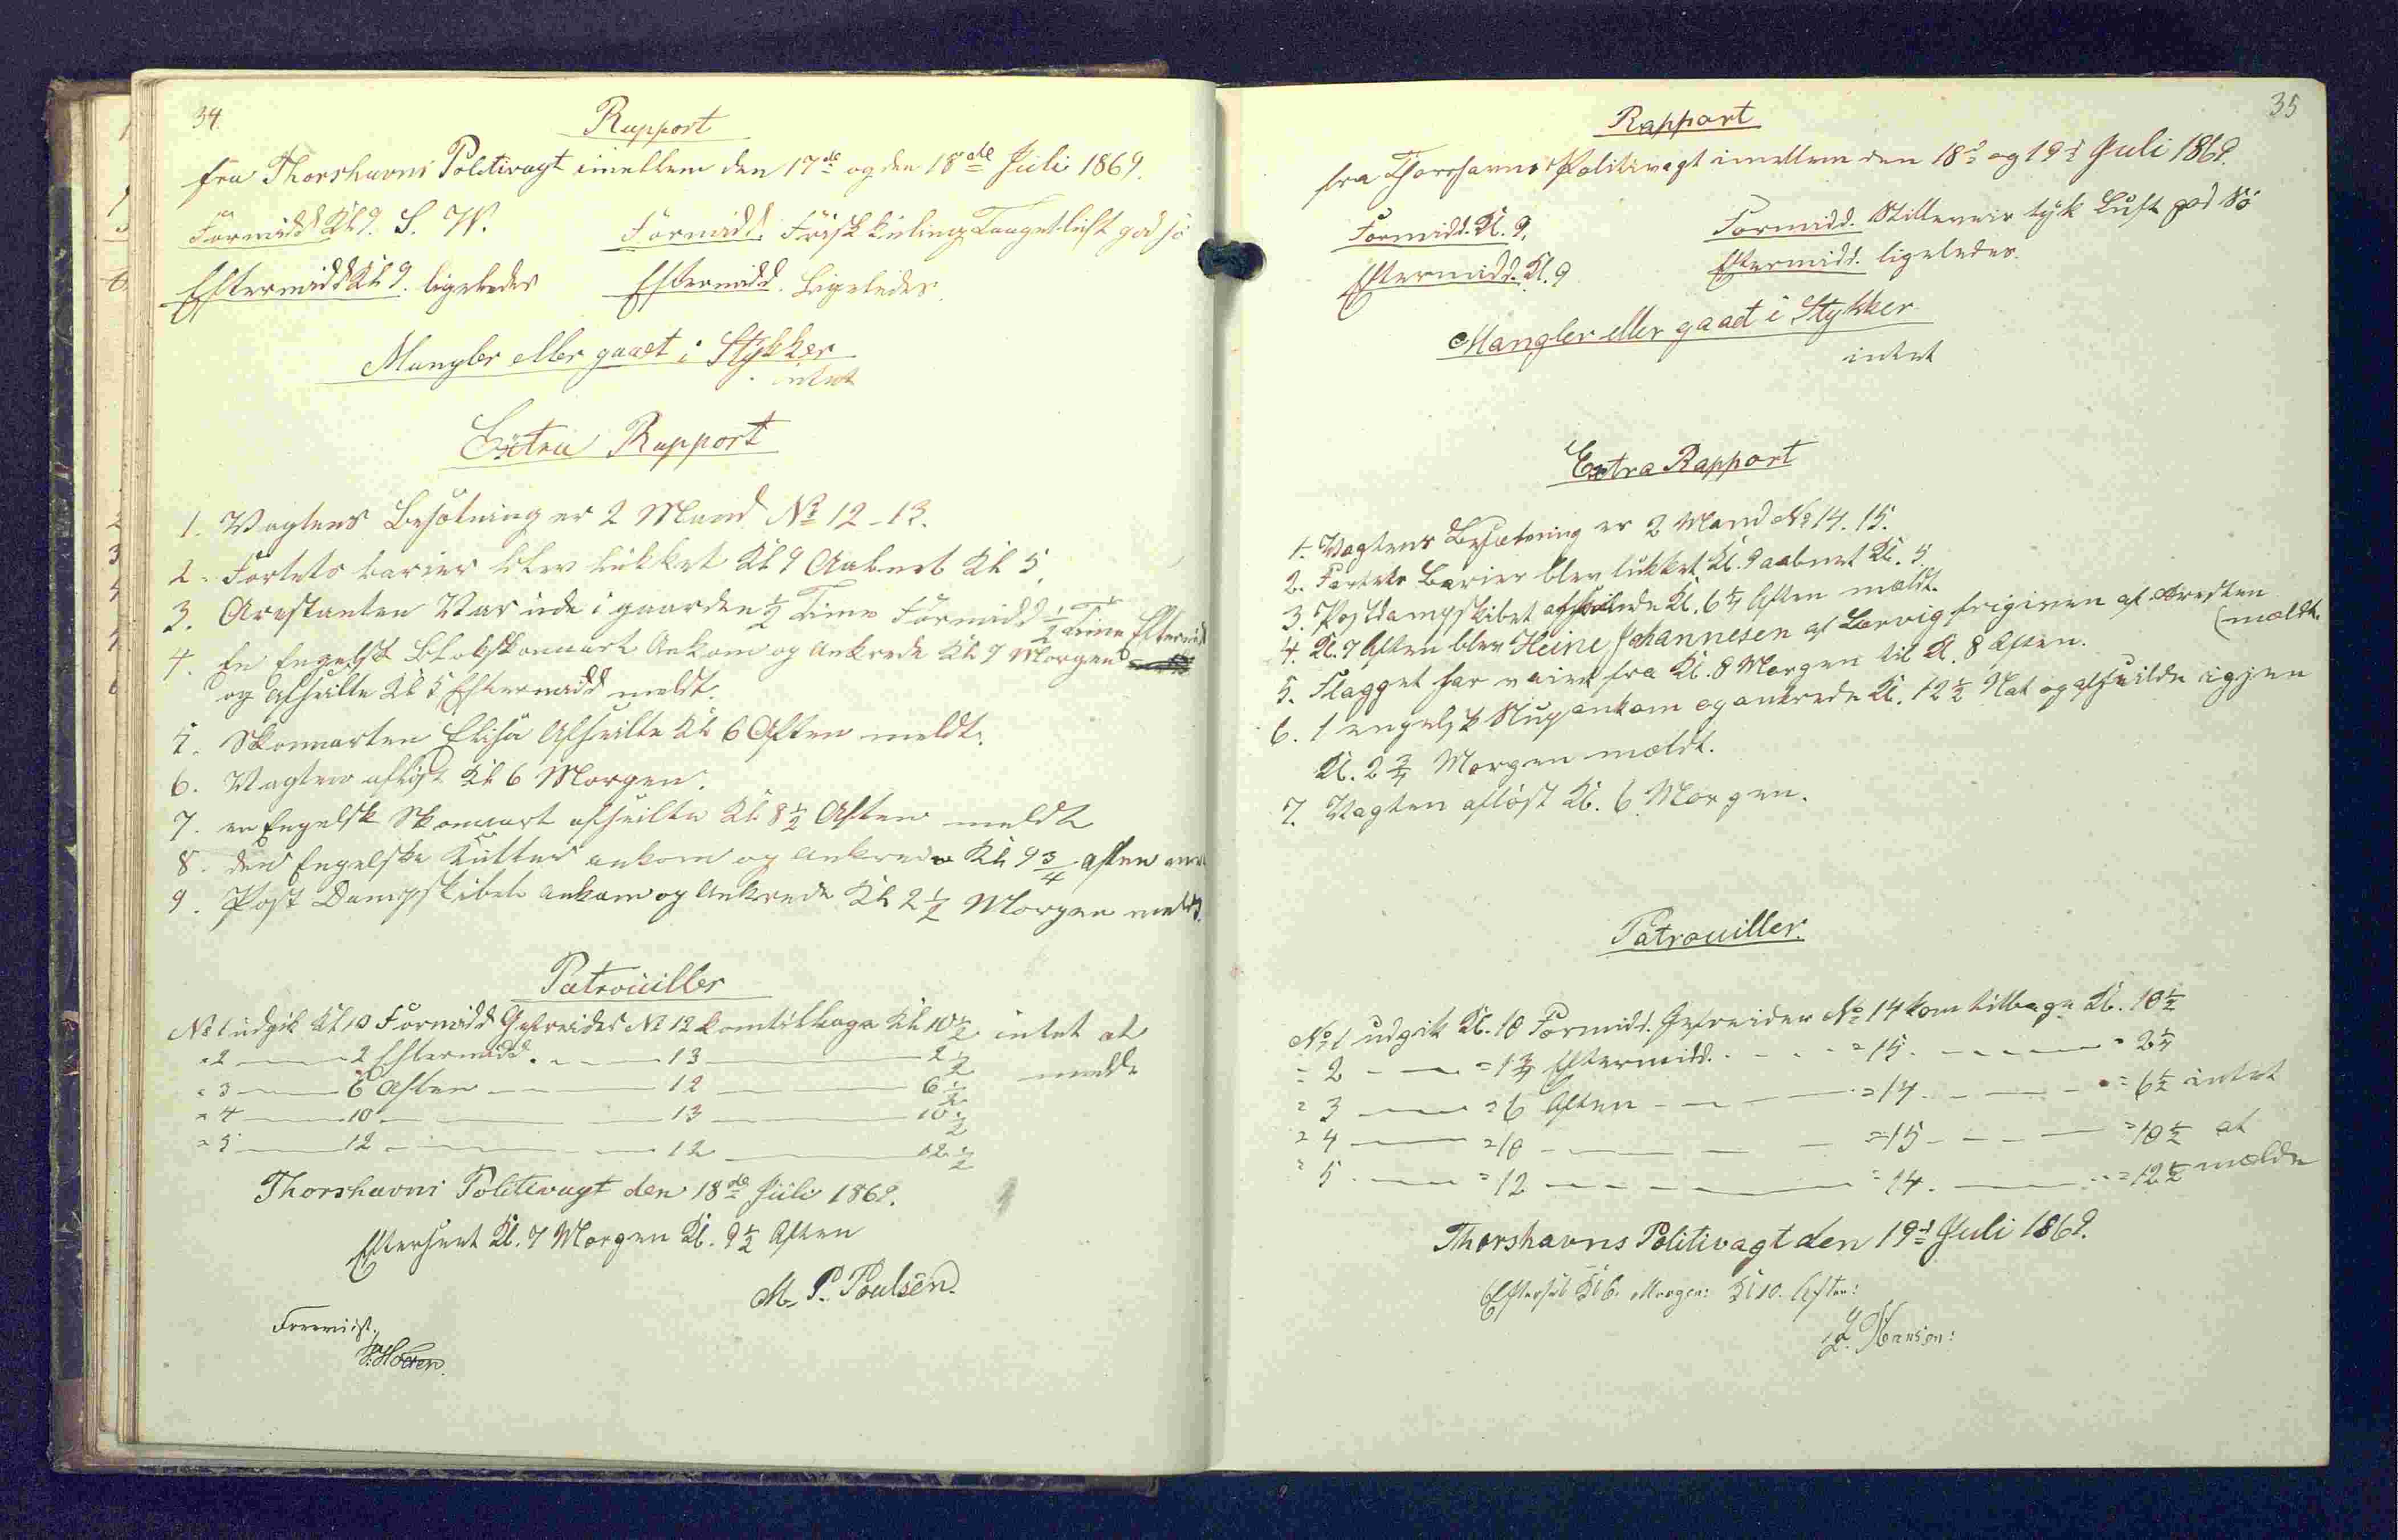 34.
Rapport
fra Thorshavns Politivagt imellem den 17de og den 18de Juli 1869.
Formidd Kl 9. S. W. Formidd. Frisk kuling Taaget luft god sö
Eftermidd Kl 9. ligeledes Eftermidd. Ligeledes
Mangler eller gaaet i Stykker
intet
Extra Rapport
1. Vagtens Besætning er 2 Mand No 12-13.
2. Fortets barier blev lukket Kl 9 Aabnet Kl 5.
3. Arestanten Var ude i gaarden 1/2 Time Formidd 1/2 Time Eftermidd
4. En Engelsk Skonnart Ankom og Ankrede Kl 7 Morgen
og afseilte Kl 5 Eftermidd meldt.
5. Skonnarten Elisa Afseilte Kl 6 Aften meldt.
6. Vagten aflöst Kl 6 Morgen.
7. en Engelsk Skonnart afseilte Kl 8 1/2 Aften meldt
8. den Engelske Kutter ankom og ankrede Kl 9 3/4 Aften
9. Post Dampskibet ankom og Ankrede Kl 2 1/2 Morgen meldt.
Patrouiller
No 1 udgik Kl 10 Formidd Gefreider No 12 kom tilbage Kl 10 1/2 intet at
" 2 — 2 Eftermidd. — 13 — 2 1/2 melde
" 3 — 6 Aften — 12 — 6 1/2
" 4 — 10 — 13 — 10 1/2
" 5 — 12 — 12 — 12 1/2
Thorshavns Politivagt den 18de Juli 1869.
Efterseet Kl. 7 Morgen Kl. 9 1/2 Aften
M. P. Poulsen.
Forevist.
35
Rapport
fra Thorshavns Politivagt imellem den 18d og 19d Juli 1869.
Formidd. Kl. 9. Formidd. Stilleveir tyk Luft god Sö
Eftermidd. Kl. 9 Eftermidd. ligeledes.
Mangler eller gaaet i Stykker
intet
Extra Rapport
1. Vagtens Besætning er 2 Mand No 14. 15.
2. Fortets Barier blev lukket Kl. 9 aabnet Kl. 5.
3. Postdampskibet afseilede Kl. 6 1/4 Aften mældt.
4. Kl. 7 Aften blev Heine Johannesen af Lervig frigiven af Arresten
(mældt.
5. Flagget har vaiet fra Kl. 8 Morgen til Kl. 8 Aften.
6. 1 engelsk Slup ankom og ankrede Kl. 12 1/2 Nat og afseilde igjen
Kl. 2 3/4 Morgen mældt.
7. Vagten aflöst Kl. 6 Morgen.
Patrouiller.
No 1 udgik Kl. 10 Formidd. Gefreider No 14 kom tilbage Kl. 10 1/2
" 2 — " 1 3/4 Eftermidd. — " 15. — " 2 1/4
" 3 — " 6 Aften — " 14. — " 6 1/2 intet
" 4 — " 10 — " 15 — " 10 1/2 at
" 5. — " 12 — " 14. — " 12 1/2 mælde
Thorshavns Politivagt den 19d Juli 1869.
Efterset Kl 6. Morgen: Kl 10. Aften:
Hansen: